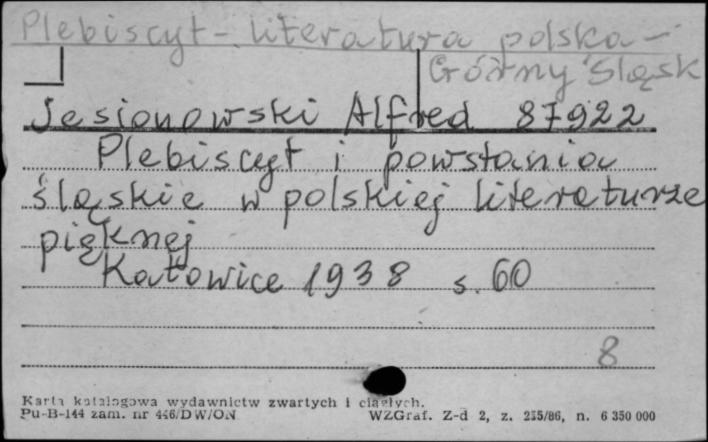 Plebiscyt - literatura polska -
Górny Śląsk
Jesionowski Alfred 87922
Plebiscyt i powstania
śląskie w polskiej literaturze
pięknej
Katowice 1938 s. 60
8
Karta katalogowa wydawnictw zwartych i ciągłych.
Pu-B-144 zam. nr 446/DW/ON WZGraf. Z-d 2, z. 255/86, n. 6 350 000